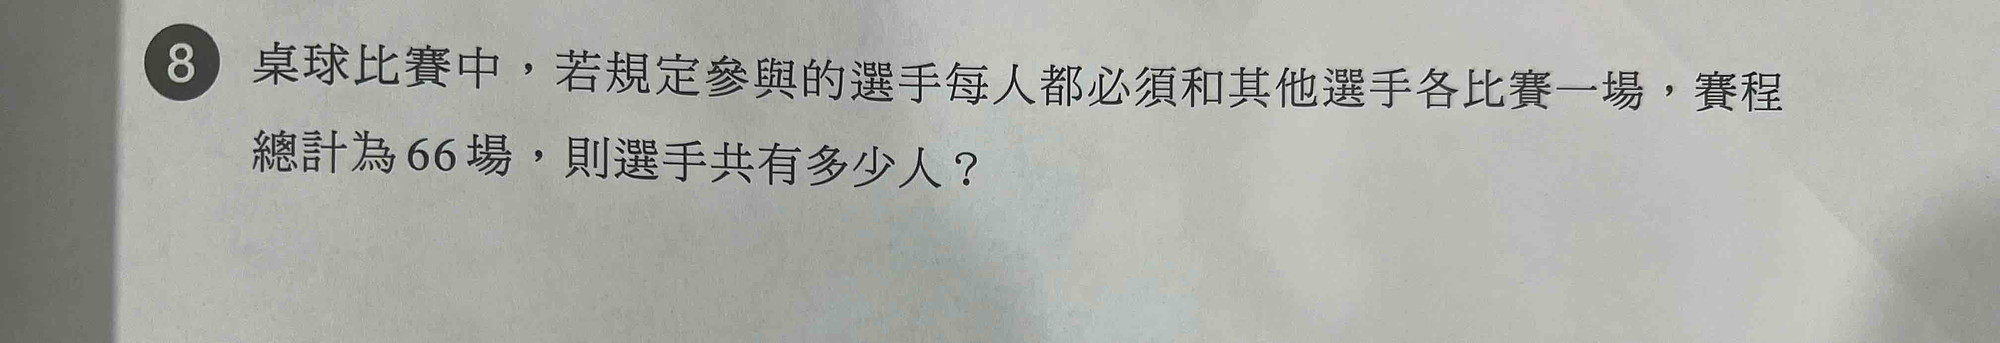 8 桌球比賽中，若規定參與的選手每人都必須和其他選手各比賽一場，賽程
總計為66場，則選手共有多少人？